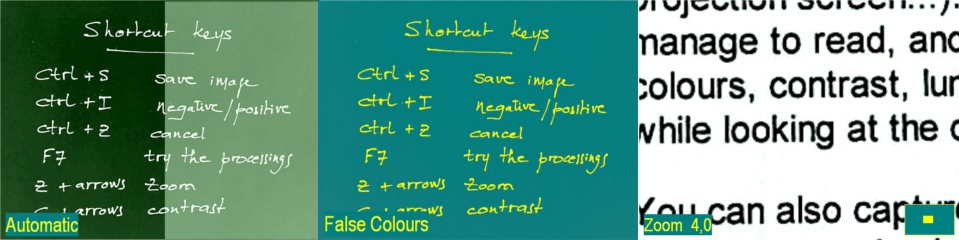 Shortcut keys
Ctrl + S save image
ctrl + I negative/positive
ctrl + Z cancel
F7 try the processings
Z + arrows Zoom
C + arrows contrast
Automatic
Shortcut keys
Ctrl + S save image
ctrl + I negative/positive
ctrl + Z cancel
F7 try the processings
Z + arrows Zoom
C + arrows contrast
False Colours
projection screen...).
manage to read, and
colours, contrast, lum
while looking at the c
You can also capture
Zoom 4,0